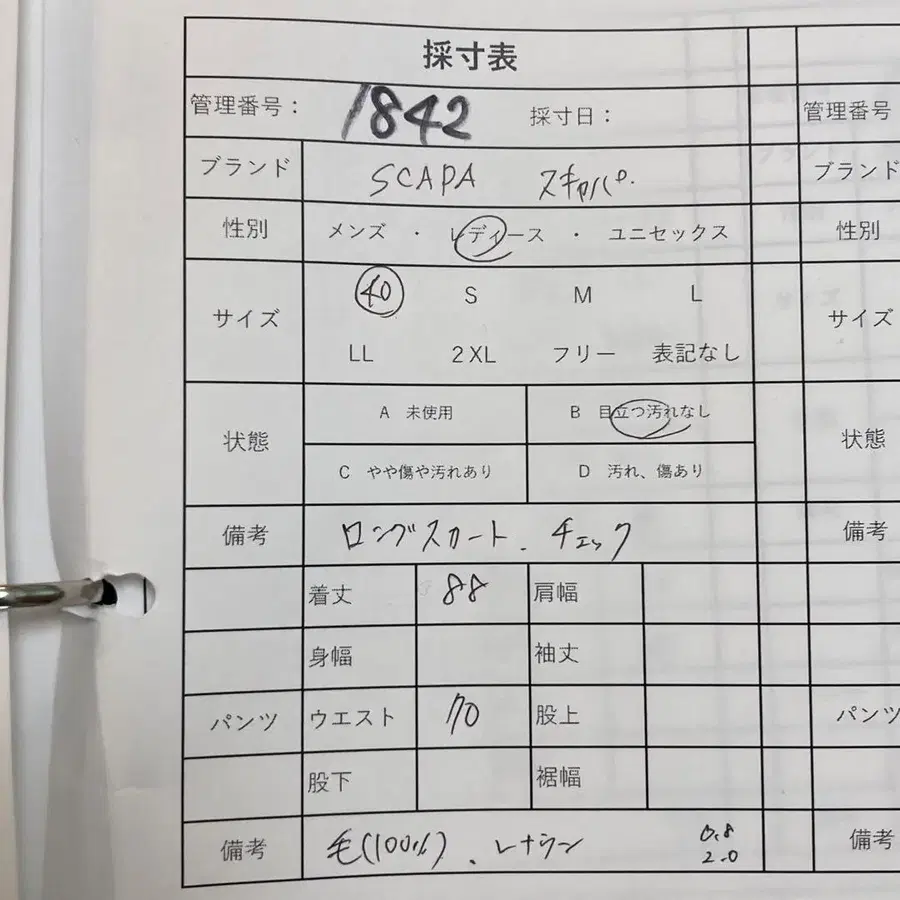 採寸表
管理番号： 1842 採寸日： 管理番号
ブランド SCAPA スキャパ. ブランド
性別 メンズ ・ レディース ・ ユニセックス 性別
サイズ 40 S M L サイズ
LL 2XL フリー 表記なし
状態 A 未使用 B 目立つ汚れなし 状態
C やや傷や汚れあり D 汚れ、傷あり
備考 ロングスカート. チェック 備考
着丈 88 肩幅
身幅 袖丈
パンツ ウエスト 70 股上 パンツ
股下 裾幅
備考 毛(100%). レナウン 0.8 備考
2.0